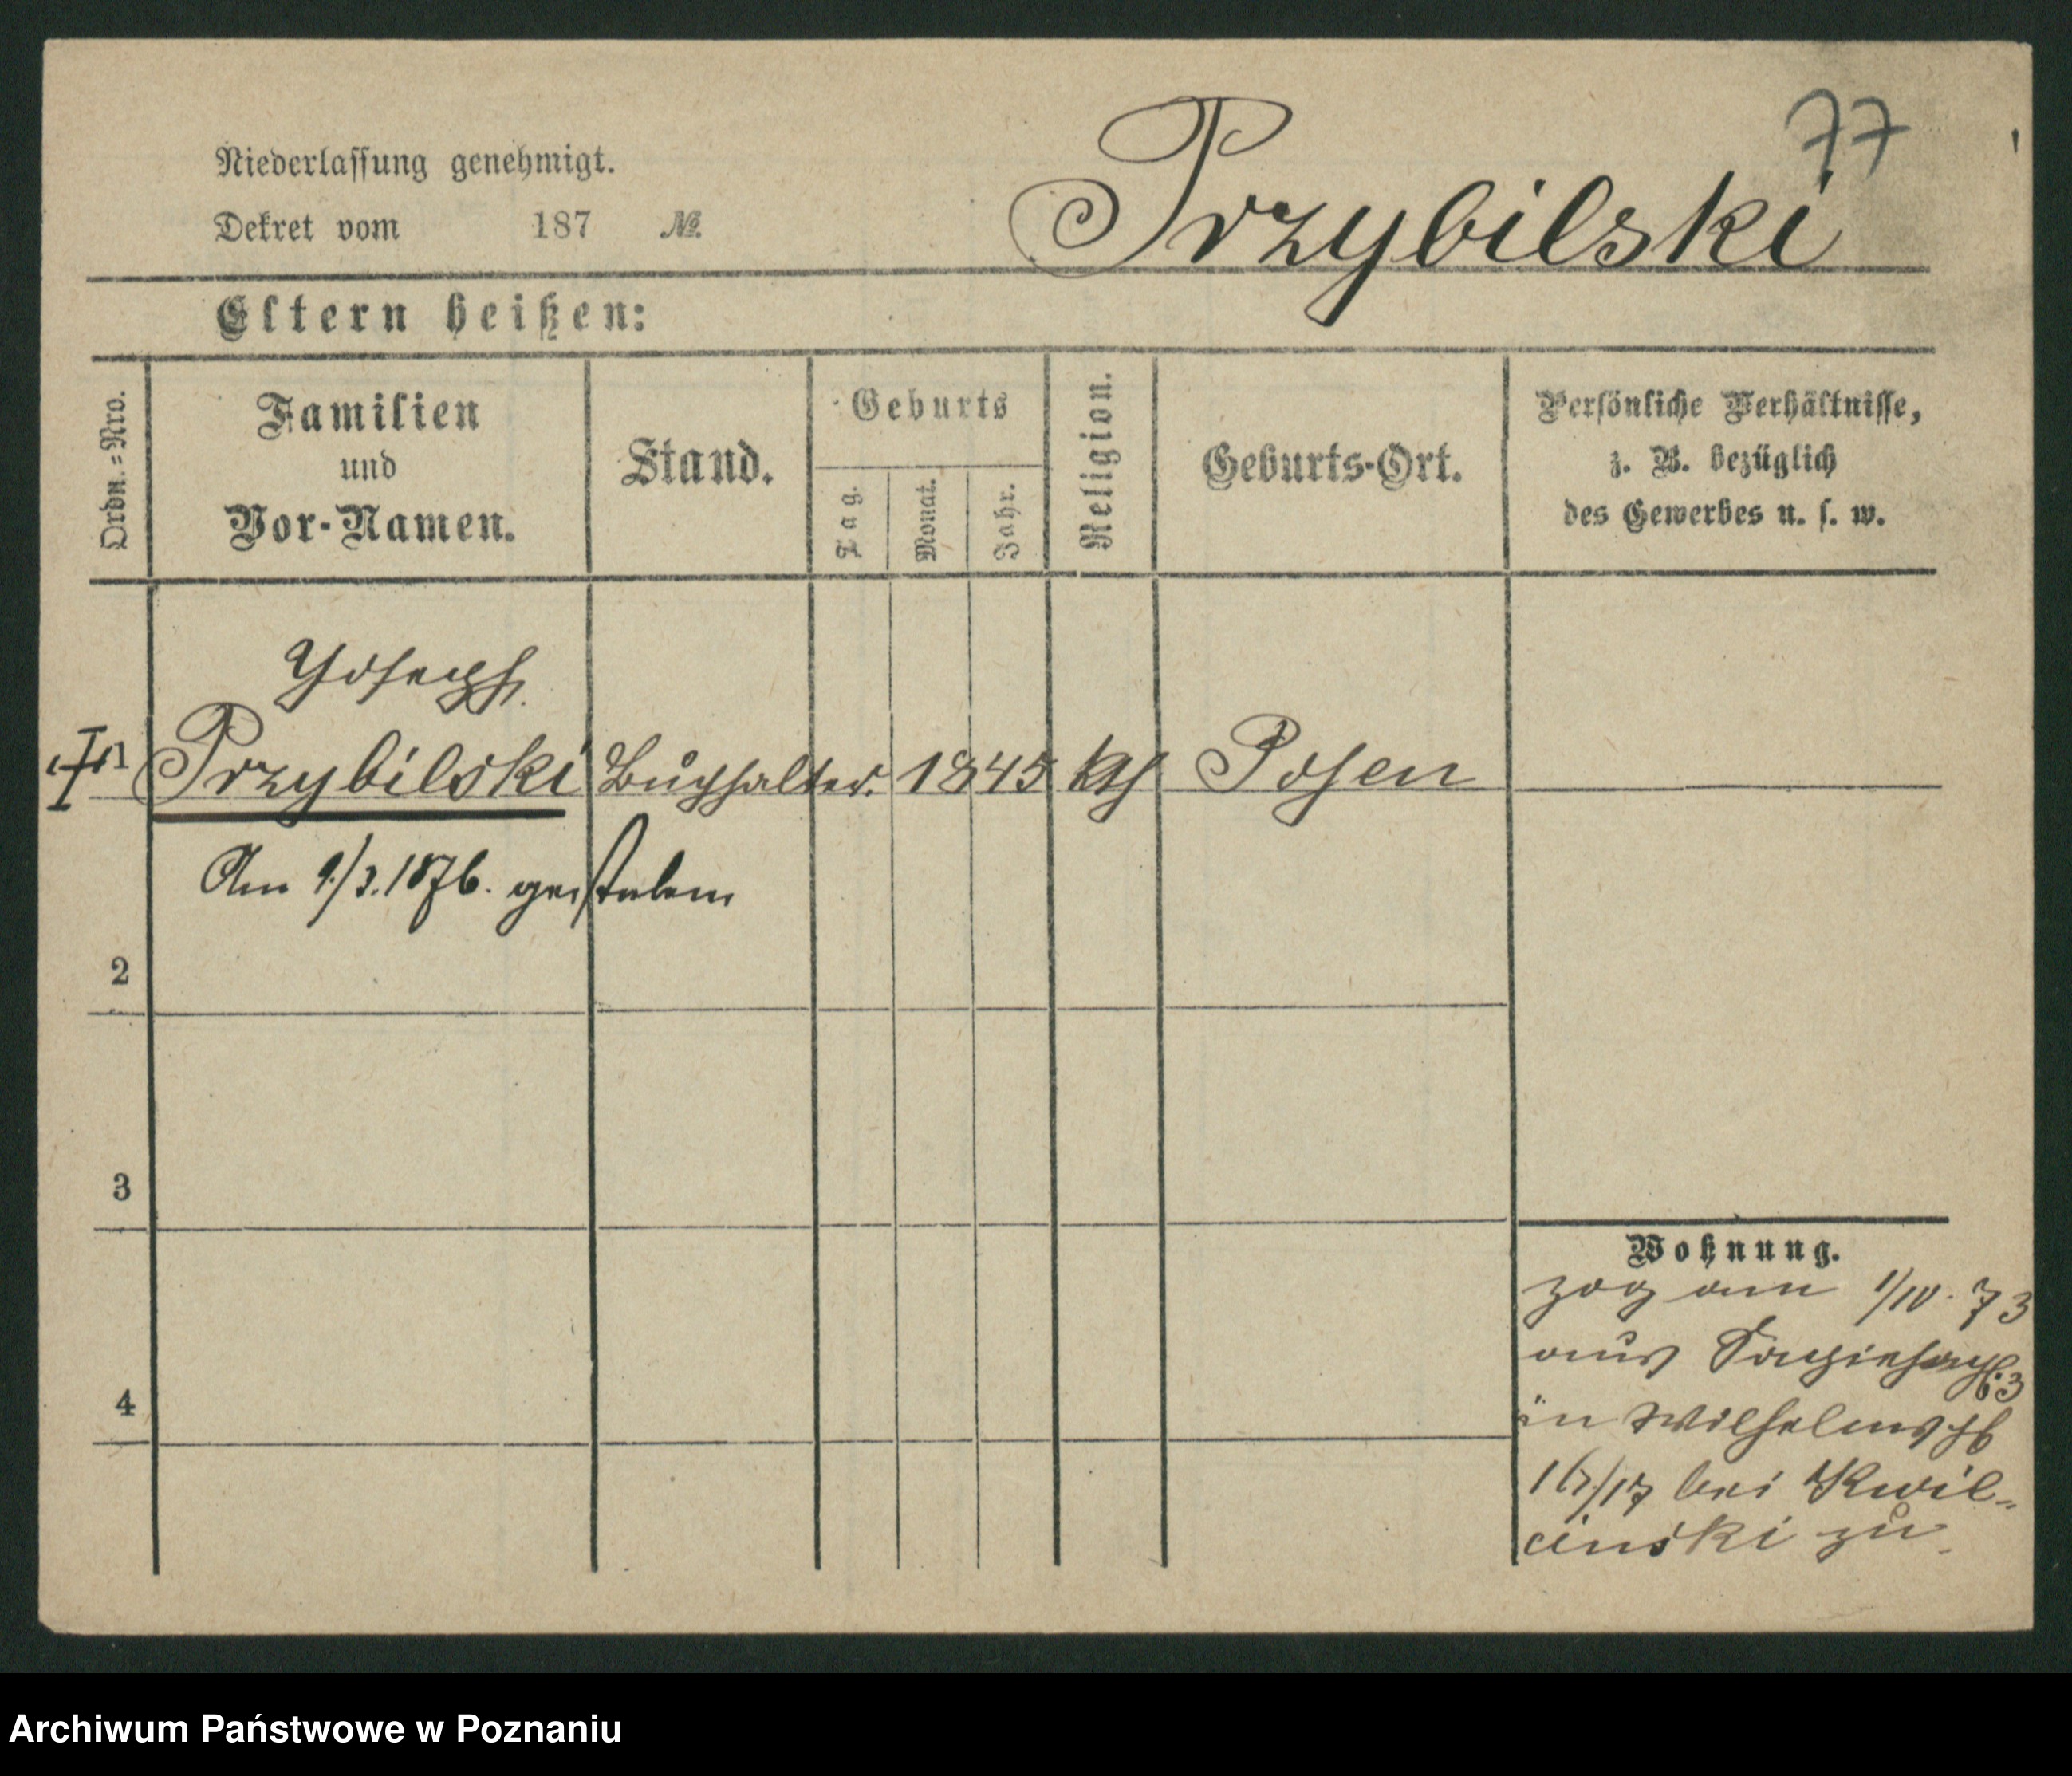 77
Niederlassung genehmigt.
Dekret vom 187 №.
Przybilski
Eltern heißen:
Ordn.=Nro.
Familien und Vor-Namen.
Stand.
Geburts
Tag.
Monat.
Jahr.
Religion.
Geburts-Ort.
Persönliche Verhältnisse,
z. B. bezüglich
des Gewerbes u. s. w.
Joseph
1 Przybilski Buchhalter. 1845 kth Posen
Am 9./3. 1876. gestorben
2
3
4
Wohnung.
zog am 1/IV. 73
aus 3
in Wilhelmsstr
16/17 bei Kwil-
cinski zu
Archiwum Państwowe w Poznaniu